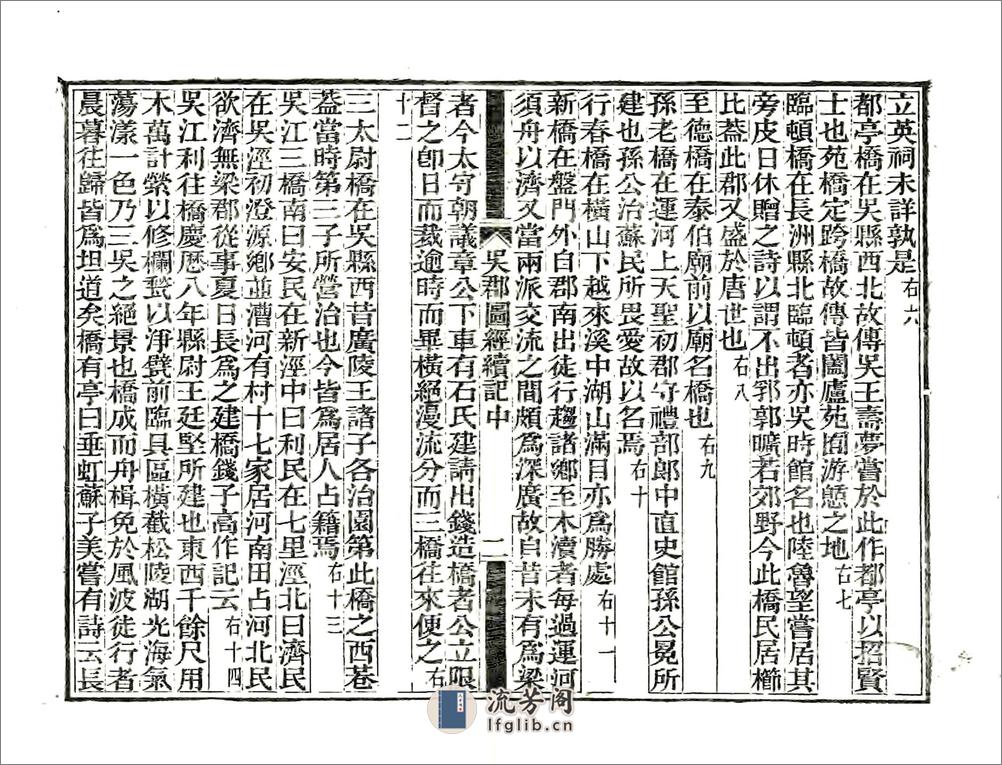 立英祠未詳孰是右六
都亭橋在吳縣西北故傳吳王壽夢嘗於此作都亭以招賢
士也苑橋定跨橋故傳皆闔廬苑囿游憩之地右七
臨頓橋在長洲縣北臨頓者亦吳時館名也陸魯望嘗居其
旁皮日休贈之詩以謂不出郛郭曠若郊野今此橋民居櫛
比葢此郡又盛於唐世也右八
至德橋在泰伯廟前以廟名橋也右九
孫老橋在運河上天聖初郡守禮部郎中直史館孫公冕所
建也孫公治蘇民所畏愛故以名焉右十
行春橋在橫山下越來溪中湖山滿目亦爲勝處右十一
新橋在盤門外自郡南出徒行趨諸鄉至木瀆者每過運河
須舟以濟又當兩派交流之間頗爲深廣故自昔未有爲梁
吳郡圖經續記中
二
者今太守朝議章公下車有石氏建請出錢造橋者公立限
督之卽日而裁逾時而畢橫絕漫流分而二橋往來便之右
十二
三太尉橋在吳縣西昔廣陵王諸子各治園第此橋之西巷
葢當時第三子所營治也今皆爲居人占籍焉右十三
吳江三橋南曰安民在新涇中曰利民在七里涇北曰濟民
在吳涇初澄源鄉並漕河有村十七家居河南田占河北民
欲濟無梁郡從事夏日長爲之建橋錢子高作記云右十四
吳江利往橋慶厯八年縣尉王廷堅所建也東西千餘尺用
木萬計縈以修欄甃以淨甓前臨具區橫截松陵湖光海氣
蕩漾一色乃三吳之絕景也橋成而舟楫免於風波徒行者
晨暮往歸皆爲坦道矣橋有亭曰垂虹蘇子美嘗有詩云長
流芳阁
lfglib.cn